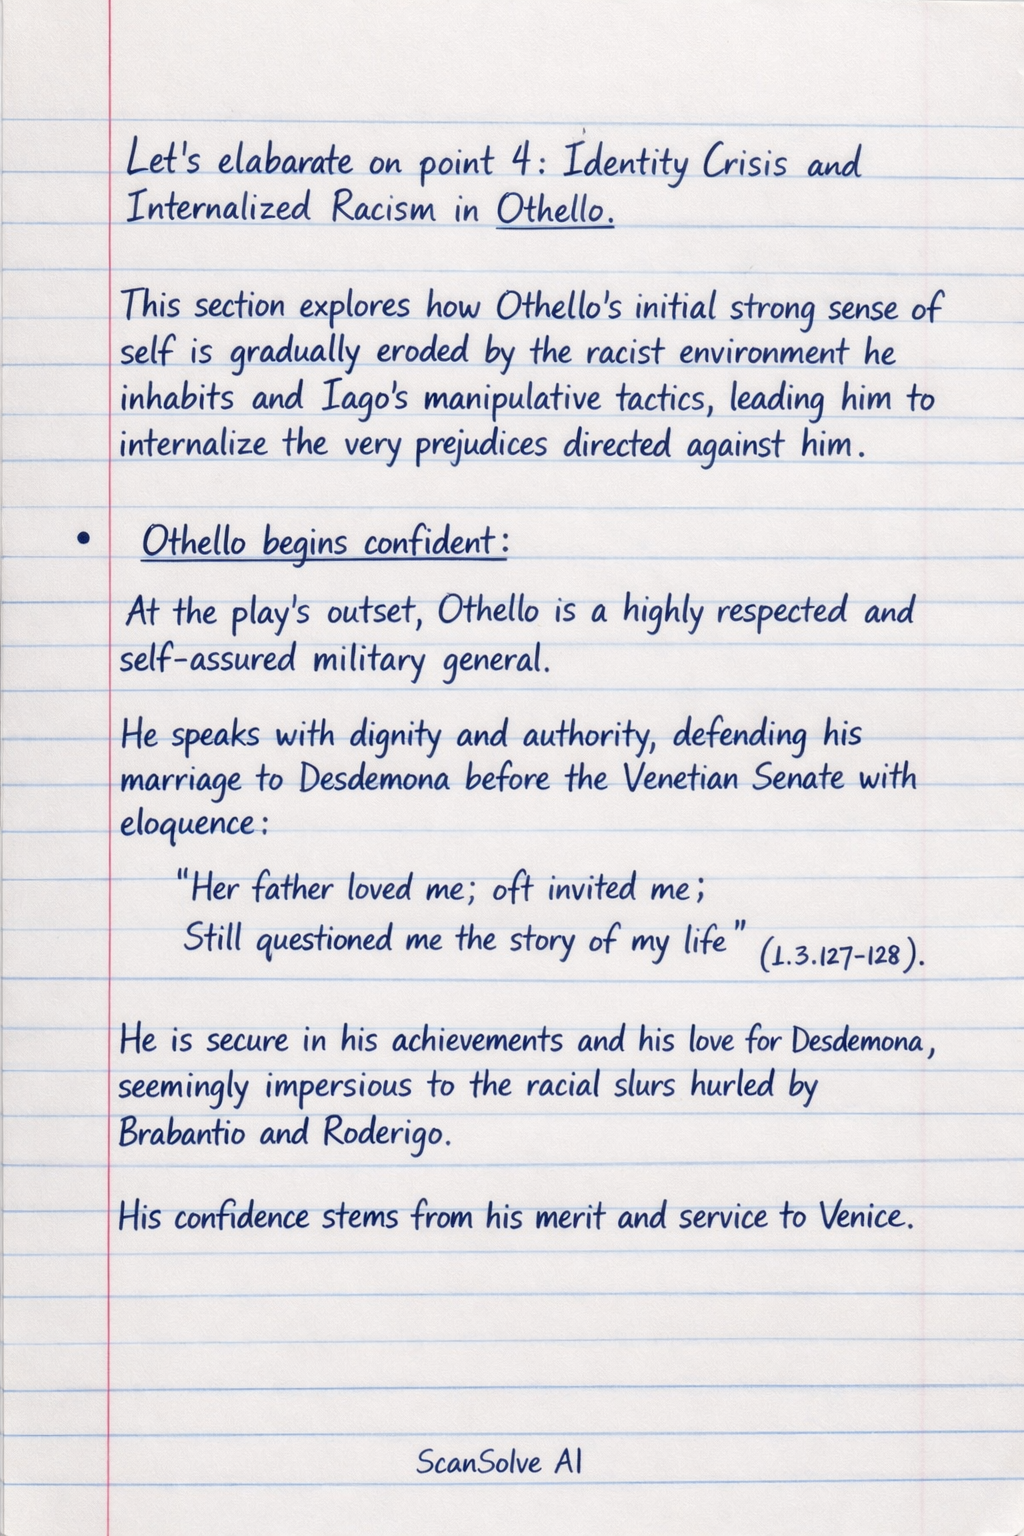 Let's elabarate on point 4: Identity Crisis and
Internalized Racism in Othello.
This section explores how Othello's initial strong sense of
self is gradually eroded by the racist environment he
inhabits and Iago's manipulative tactics, leading him to
internalize the very prejudices directed against him.
• Othello begins confident:
At the play's outset, Othello is a highly respected and
self-assured military general.
He speaks with dignity and authority, defending his
marriage to Desdemona before the Venetian Senate with
eloquence:
"Her father loved me; oft invited me;
Still questioned me the story of my life" (1.3.127-128).
He is secure in his achievements and his love for Desdemona,
seemingly impersious to the racial slurs hurled by
Brabantio and Roderigo.
His confidence stems from his merit and service to Venice.
ScanSolve AI